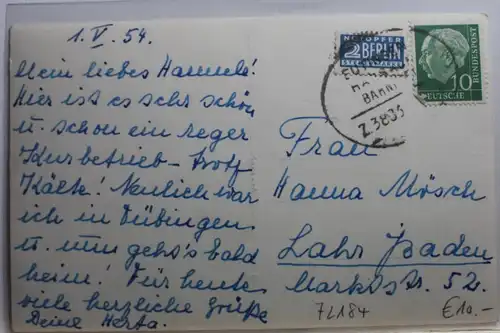 1. V. 54.
Mein liebes Hannele!
Hier ist es sehr schön
u. schon ein reger
Kurbetrieb – trotz
Kälte! Neulich war
ich in Tübingen
u. nun geht's bald
heim! Für heute
viele herzliche Grüße
Deine Herta.
NOTOPFER
2 BERLIN
STEUERMARKE
DEUTSCHE
BUNDESPOST
10
BAHN
Z.3835
Frau
Hanna Mösch
Lahr/Baden
Marktstr. 52.
72184
€10.-